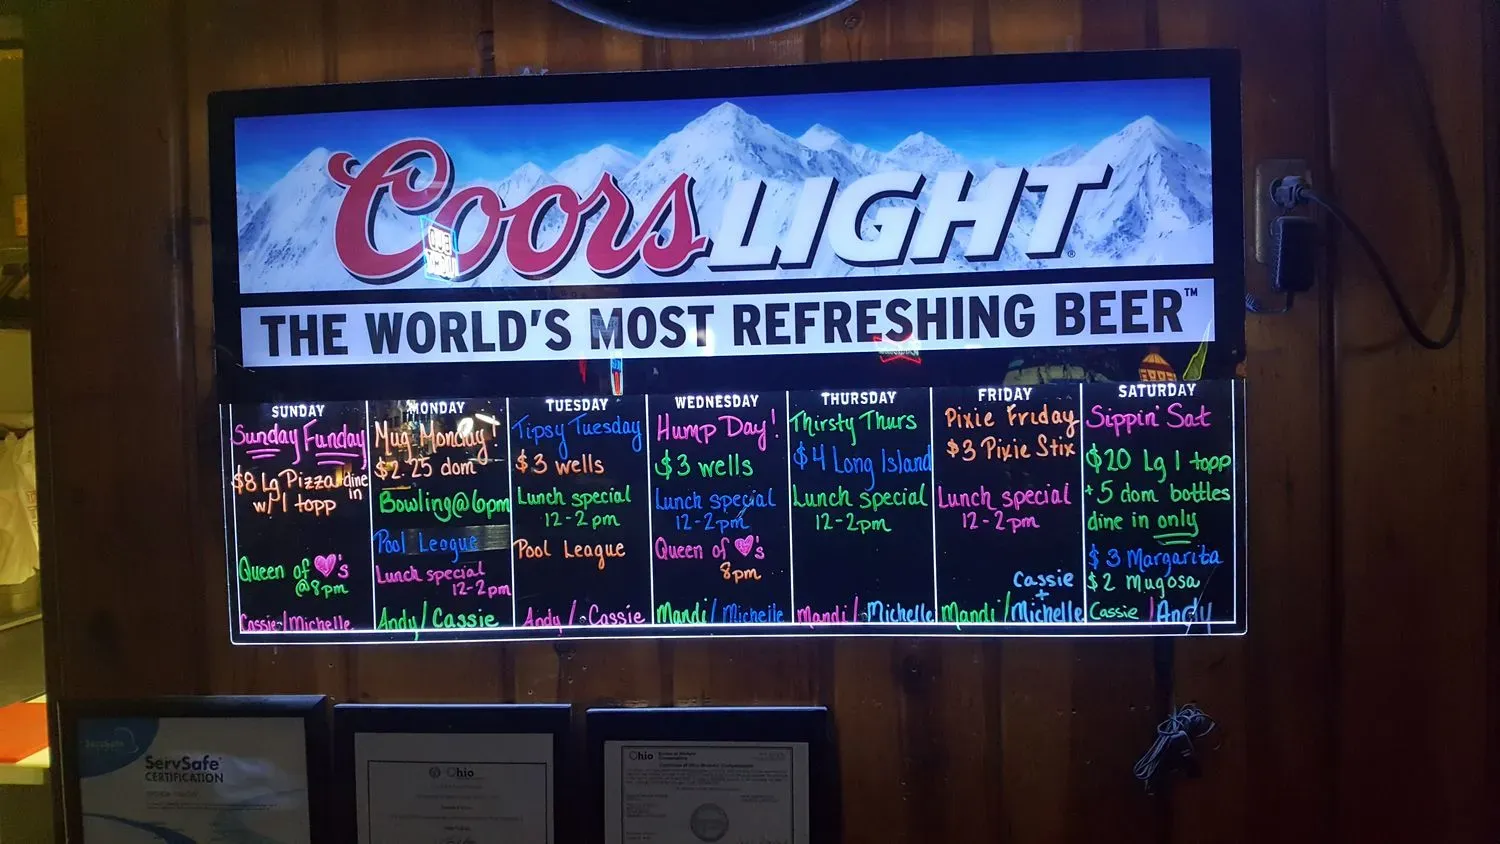 Coors LIGHT®
THE WORLD'S MOST REFRESHING BEER™
SUNDAY
Sunday Funday
$8 Lg Pizza dine in
w/1 topp
Queen of ♥'s
@8pm
Cassie/Michelle
MONDAY
Mug Monday!
$2.25 dom
Bowling@6pm
Pool League
Lunch special
12-2pm
Andy/Cassie
TUESDAY
Tipsy Tuesday
$3 wells
Lunch special
12-2pm
Pool League
Andy/Cassie
WEDNESDAY
Hump Day!
$3 wells
Lunch special
12-2pm
Queen of ♥'s
8pm
Mandi/Michelle
THURSDAY
Thirsty Thurs
$4 Long Island
Lunch special
12-2pm
Mandi/Michelle
FRIDAY
Pixie Friday
$3 Pixie Stix
Lunch special
12-2pm
Cassie
+
Mandi/Michelle
SATURDAY
Sippin' Sat
$20 Lg 1 topp
+5 dom bottles
dine in only
$3 Margarita
$2 Mugosa
Cassie/Andy
ServSafe
CERTIFICATION
Ohio
Ohio